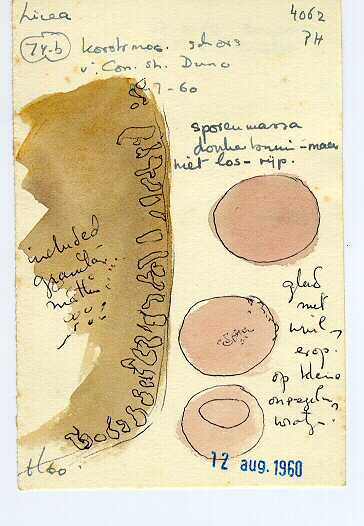 Licea
4062
PH
74-b
korstmos. schors
v. Con. sh. Duno
7-60
sporenmassa
donkerbruin - maar
niet los - rijp.
included
granular
matter
glad
met
vuil
erop.
op kleine
wratje
12 aug. 1960